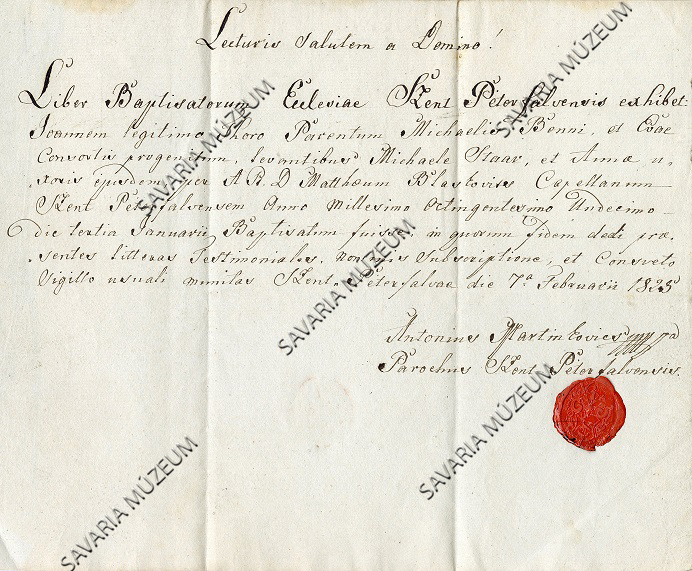 Lecturis Salutem a Domino!
Liber Baptisatorum Eclesiae Szent Péterfalvensis exhibet
Joannem legitimo thoro Parentum Michaelis Benni, et Evae
Consortis progenitum, Levantibus Michaele Staar, et Anna u-
xoris ejusdem per A. R. D. Matthæum Blaskovics Capellanum
Szent Péterfalvensem Anno Millesimo Octingentesimo Undecimo
die tertia Januarii Baptisatum fuisse, in quorum fidem dedi præ-
sentes litteras Testimoniales, nominis Subscriptione, et Consveto
Sigillo usuali munitas Szent Péterfalvae die 7.a Februarii 1825
Antonius Martinkovics mpa
Parochus Szent Péterfalvensis.
SAVARIA MÚZEUM
SAVARIA MÚZEUM
SAVARIA MÚZEUM
SAVARIA MÚZEUM
SAVARIA MÚZEUM